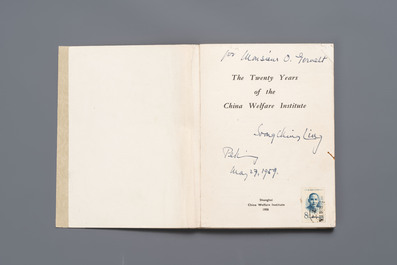 for Monsieur O.
The Twenty Years
of the
China Welfare Institute
Soong Ching Ling
Peking
May 29, 1959.
Shanghai
China Welfare Institute
1958
8